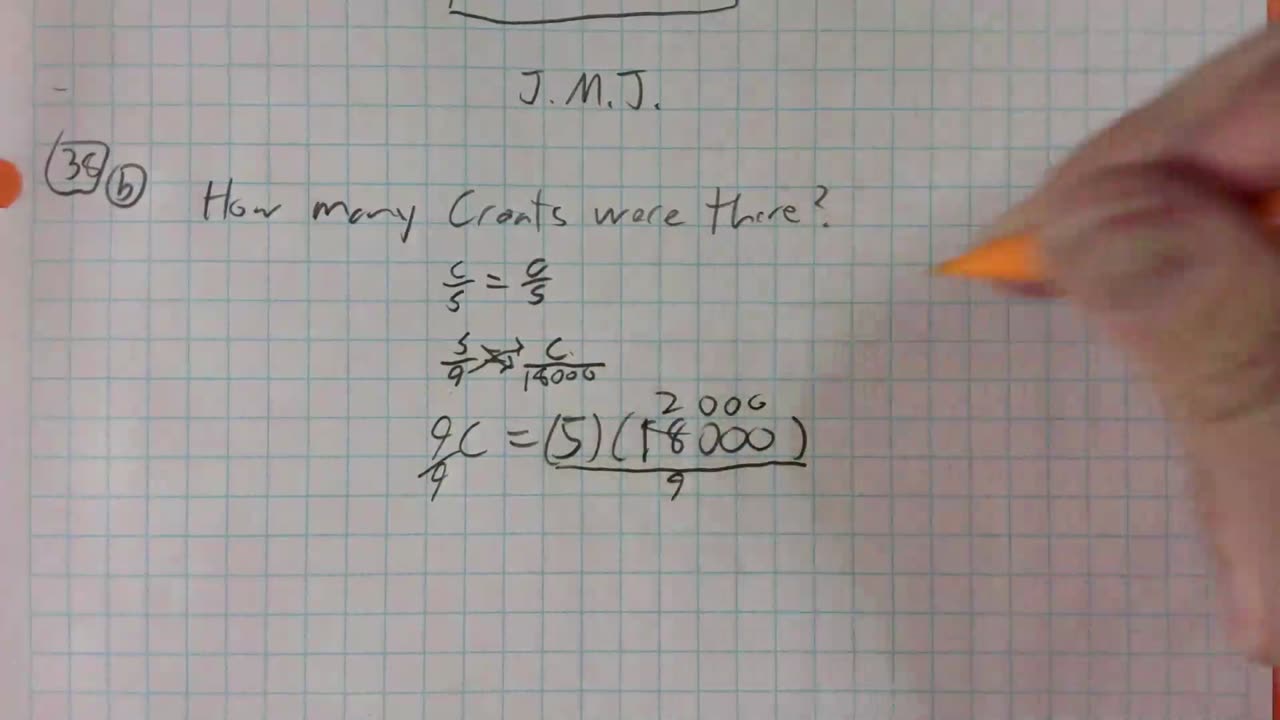 J. M. J.
38 b How many Croats were there?
C/S = C/S
5/9 C/18000
2 000
9C/9 = (5)(18000)/9